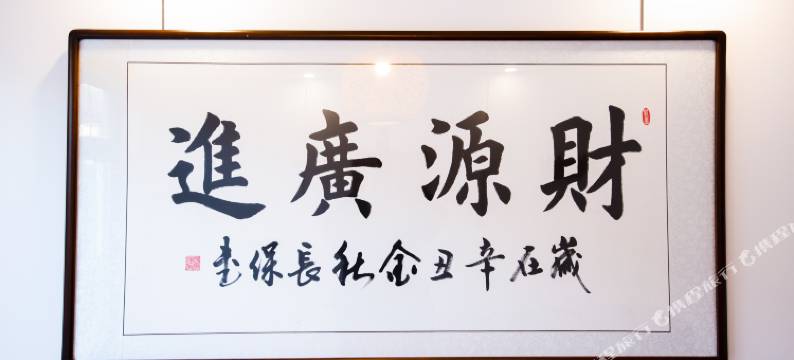 財源廣進
歲在辛丑金秋長保书
携程旅行 携程旅行